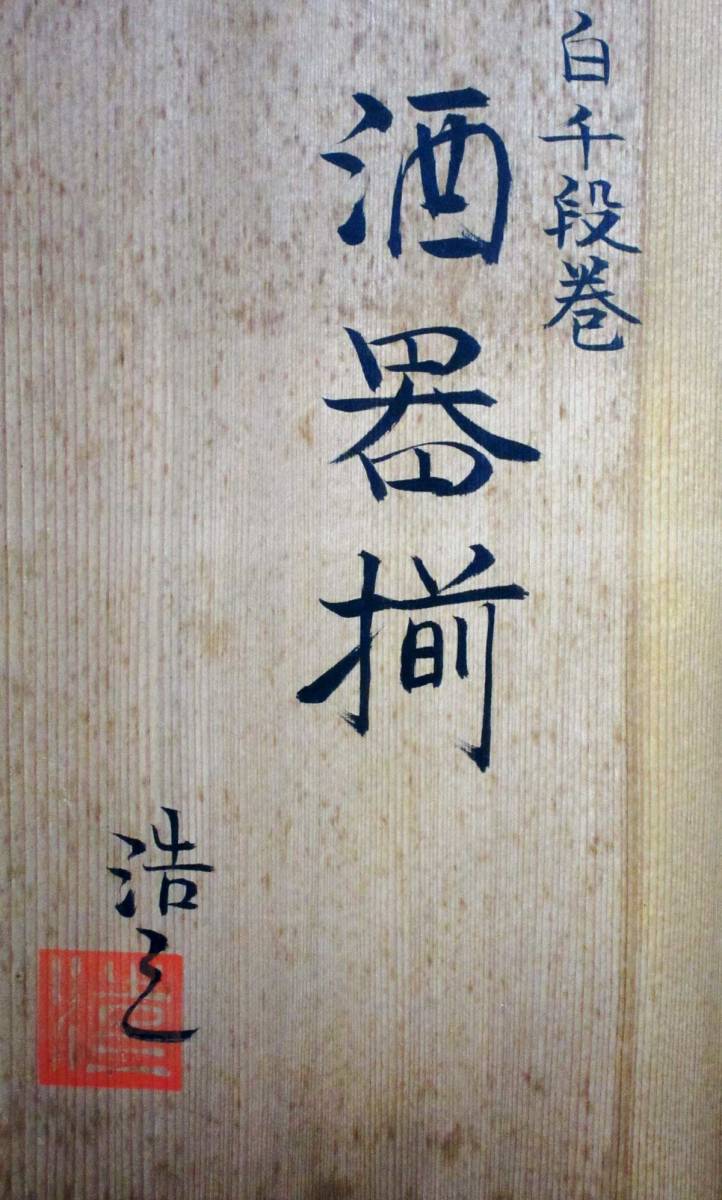 白千段巻
酒器揃
浩之